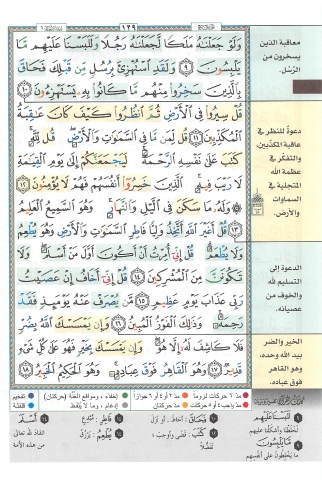 ١٢٩
وَلَوْ جَعَلْنَٰهُ مَلَكًا لَّجَعَلْنَٰهُ رَجُلًا وَلَلَبَسْنَا عَلَيْهِم مَّا
يَلْبِسُونَ ٩ وَلَقَدِ ٱسْتُهْزِئَ بِرُسُلٍ مِّن قَبْلِكَ فَحَاقَ
بِٱلَّذِينَ سَخِرُوا۟ مِنْهُم مَّا كَانُوا۟ بِهِۦ يَسْتَهْزِءُونَ ١٠
قُلْ سِيرُوا۟ فِى ٱلْأَرْضِ ثُمَّ ٱنظُرُوا۟ كَيْفَ كَانَ عَٰقِبَةُ
ٱلْمُكَذِّبِينَ ١١ قُل لِّمَن مَّا فِى ٱلسَّمَٰوَٰتِ وَٱلْأَرْضِ قُل لِّلَّهِ
كَتَبَ عَلَىٰ نَفْسِهِ ٱلرَّحْمَةَ لَيَجْمَعَنَّكُمْ إِلَىٰ يَوْمِ ٱلْقِيَٰمَةِ
لَا رَيْبَ فِيهِ ٱلَّذِينَ خَسِرُوٓا۟ أَنفُسَهُمْ فَهُمْ لَا يُؤْمِنُونَ ١٢
وَلَهُۥ مَا سَكَنَ فِى ٱلَّيْلِ وَٱلنَّهَارِ وَهُوَ ٱلسَّمِيعُ ٱلْعَلِيمُ
١٣ قُلْ أَغَيْرَ ٱللَّهِ أَتَّخِذُ وَلِيًّا فَاطِرِ ٱلسَّمَٰوَٰتِ وَٱلْأَرْضِ وَهُوَ يُطْعِمُ
وَلَا يُطْعَمُ قُلْ إِنِّىٓ أُمِرْتُ أَنْ أَكُونَ أَوَّلَ مَنْ أَسْلَمَ وَلَا
تَكُونَنَّ مِنَ ٱلْمُشْرِكِينَ ١٤ قُلْ إِنِّىٓ أَخَافُ إِنْ عَصَيْتُ
رَبِّى عَذَابَ يَوْمٍ عَظِيمٍ ١٥ مَّن يُصْرَفْ عَنْهُ يَوْمَئِذٍ فَقَدْ
رَحِمَهُۥ وَذَٰلِكَ ٱلْفَوْزُ ٱلْمُبِينُ ١٦ وَإِن يَمْسَسْكَ ٱللَّهُ بِضُرٍّ
فَلَا كَاشِفَ لَهُۥٓ إِلَّا هُوَ وَإِن يَمْسَسْكَ بِخَيْرٍ فَهُوَ عَلَىٰ كُلِّ شَىْءٍ
قَدِيرٌ ١٧ وَهُوَ ٱلْقَاهِرُ فَوْقَ عِبَادِهِۦ وَهُوَ ٱلْحَكِيمُ ٱلْخَبِيرُ ١٨
معاقبة الذين
يسخرون من
الرُّسُل.
دعوة للنظر في
عاقبة المكذبين
والتفكر في
عظمة الله
المتجلية في
السماوات
والأرض.
الدعوة إلى
التسليم لله
والخوف من
عصيانه.
الخير والضر
بيد الله وحده،
وهو القاهر
فوق عباده.
مد ٦ حركات لزوماً مد ٢ أو ٤ أو ٦ جوازاً إخفاء، ومواقع الغُنَّة (حركتان) تفخيم
مد واجب ٤ أو ٥ حركات مد حركتان إدغام، وما لا يُلفظ قلقلة
٩ لَلَبَسْنَا عَلَيْهِم
١٠ فَحَاقَ: أحَاطَ، أو نَزَلَ
١٢ كَتَبَ: قَضَى وأوجبَ،
تفضُّلاً
١٤ فَاطِرِ: مُبْدِعِ
يُطْعِمُ: يَرْزُقُ
أَسْلَمَ
من هذه الأمة
مَّا يَلْبِسُونَ
ما يَخْلِطُونَ على أنفُسِهم